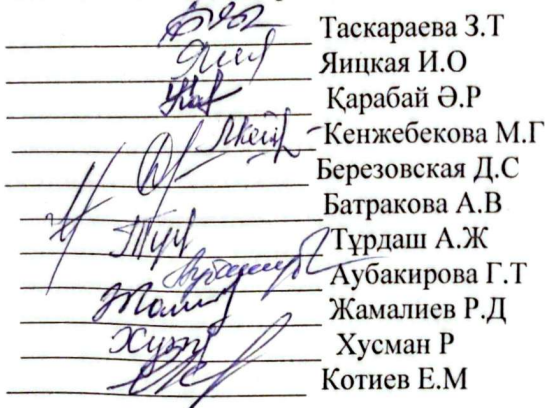 Таскараева З.Т
Яицкая И.О
Қарабай Ә.Р
Кенжебекова М.Г
Березовская Д.С
Батракова А.В
Тұрдаш А.Ж
Аубакирова Г.Т
Жамалиев Р.Д
Хусман Р
Котиев Е.М